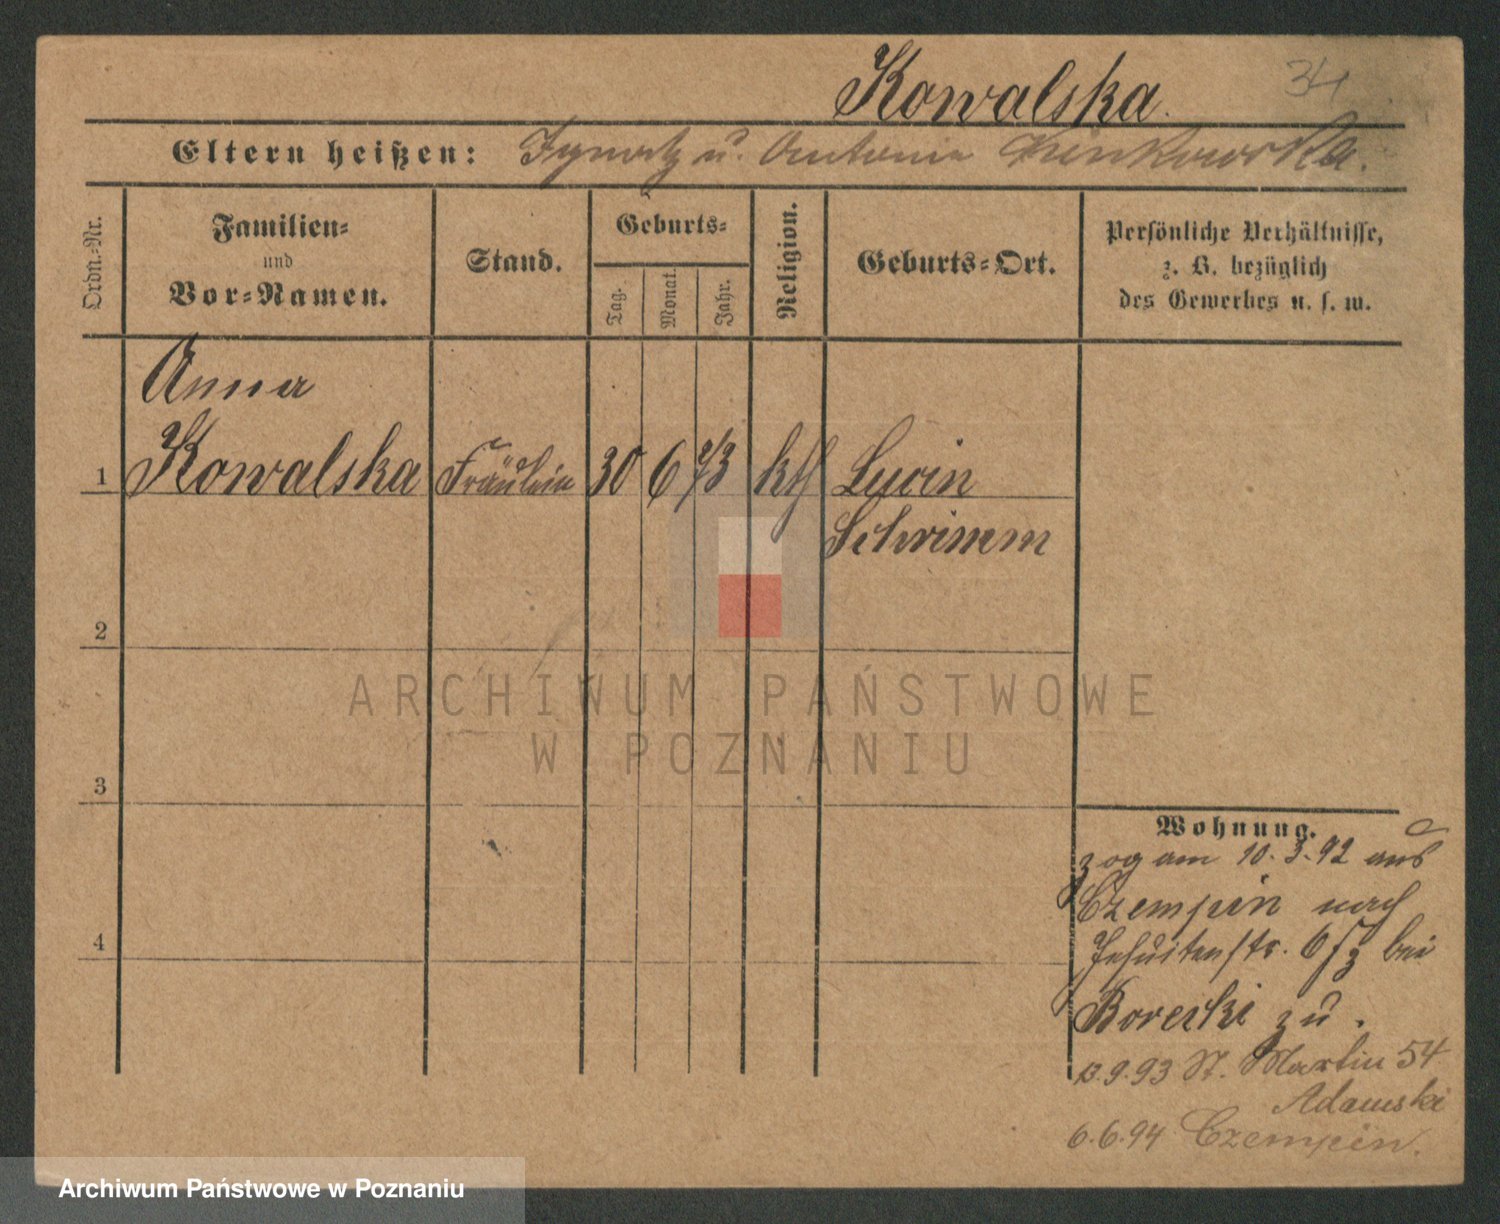 Kowalska.
34
Eltern heißen: Ignatz u. Antonia
Ordn.-Nr.
Familien-
und
Vor-Namen.
Stand.
Geburts-
Tag.
Monat.
Jahr.
Religion.
Geburts-Ort.
Persönliche Verhältnisse,
z. B. bezüglich
des Gewerbes u. s. w.
Anna
1 Kowalska Fräulein 30 6 73 kth Lucin
Schrimm
2
3
4
Wohnung.
zog am 10.3.92 aus
Czempin nach
Jesuitenstr. 6 bei
Borecki zu.
13.9.93 St. Martin 54
Adamski
6.6.94 Czempin.
ARCHIWUM PAŃSTWOWE
W POZNANIU
Archiwum Państwowe w Poznaniu